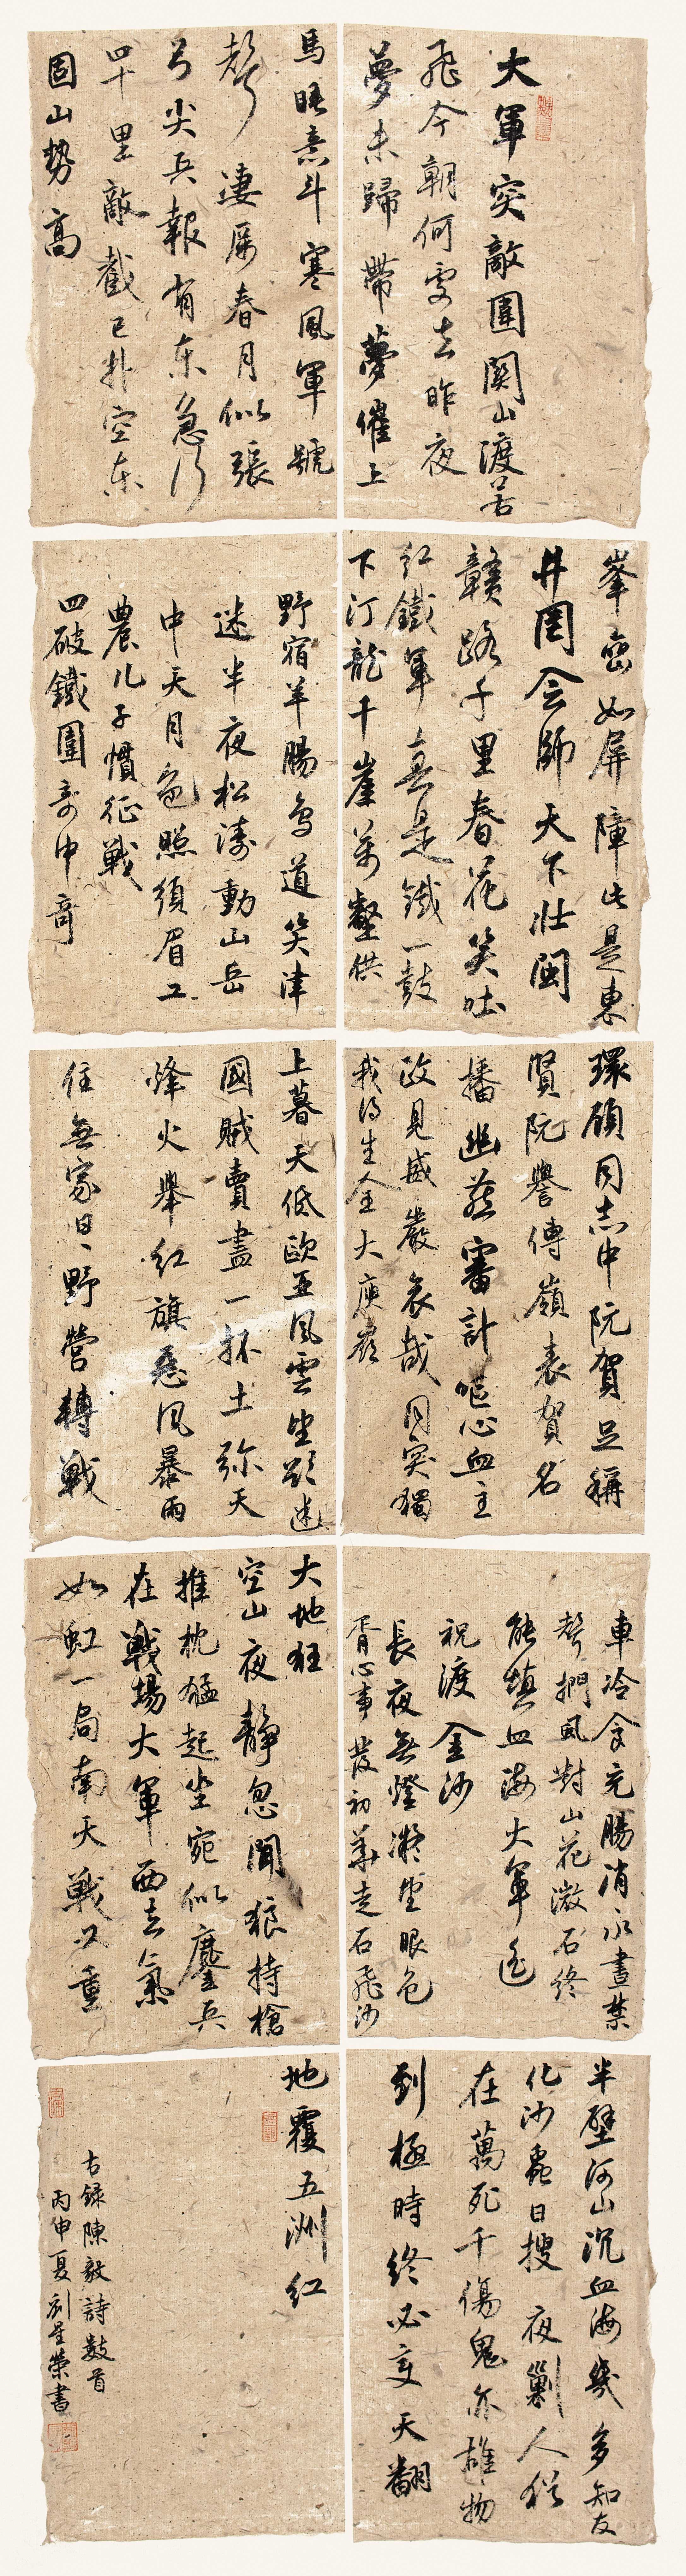 大軍突敵圍關山渡若
飛今朝何處去昨夜
夢未歸帶夢催上
馬睡意斗寒風軍號
聲淒厲春月似張
弓尖兵報有東急行
四十里敵截已撲空東
固山勢高
峯巒如屏障此是東
井岡會師天下壯閩
贛路千里春花笑吐
紅鐵軍真是鐵一鼓
下汀龍千崖萬壑供
野宿羊腸鳥道笑津
迷半夜松濤動山岳
中天月色照須眉工
農儿子慣征戰
四破鐵圍奇中奇
環顧同志中阮賀足稱
賢阮譽傳嶺表賀名
播幽燕審計嘔心血主
政見威嚴哀哉同突獨
我得生全大庾嶺
上暮天低歐亞風雲坐欲迷
國賊賣盡一抔土弥天
烽火舉紅旗惡風暴雨
住無家日、野營轉戰
車冷食充腸消永晝禁
聲捫虱對山花微石終
能填血海大軍遙
祝渡金沙
長夜無燈凝坐眼包
胥心事發初華走石飛沙
大地狂
空山夜靜忽聞狼持槍
推枕猛起坐宛似鏖兵
在戰場大軍西去氣
如虹一局南天戰又重
半壁河山沉血海幾多知友
化沙蟲日搜夜剿人猶
在萬死千傷鬼亦雄物
到極時終必變天翻
地覆五洲紅
右錄陳毅詩數首
丙申夏劉星榮書